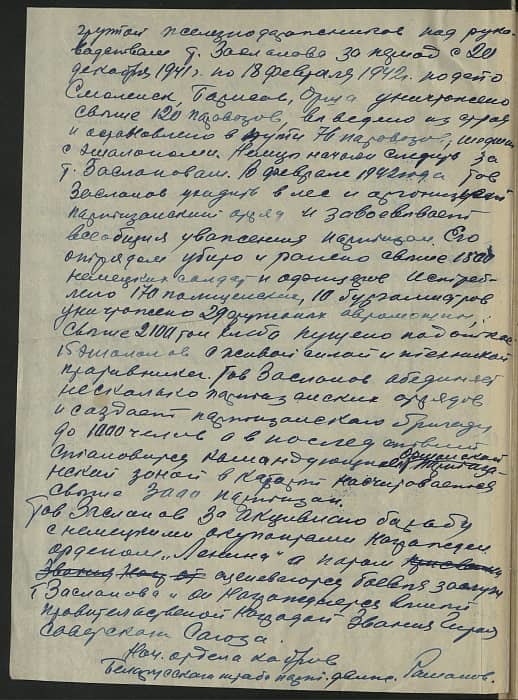 группой железнодорожников под руко-
водством т. Заслонова за период с 20
декабря 1941г. по 18 февраля 1942г. по депо
Смоленск, Борисов, Орша уничтожено
свыше 120 паровозов, выведено из строя
и остановлено в пути 70 паровозов,
с эшалонами. Немцы начали следить за
т. Заслоновам. В феврале 1942 года Тов
Заслонов уходить в лес и организует
партизанский отряд и завоевывает
всеобщия уважения партизан. Его
отрядом убито и ранено свыше 1500
немецких солдат и офицеров. Истреб-
лено 170 полицейских, 10 бургамистров
уничтожено 29 автомашин,
свыше 2100 тон хлеба пущено под откос
15 эшалонов с живой силой и техникой
противника. Тов Заслонов обединяет
несколько партизанских отрядов
и создает партизанскую бригаду
до 1000 челов а в последствии
становится командующим Оршанской партиза-
нской зоной в каторой насчитывается
свыше 3000 партизан.
Тов Заслонов за активную борьбу
с немецкими окупантами награжден
орденом „Ленина" а потом
Звания оцениваются боевыя заслуги
т Заслонова и он награждается высшей
правительственой наградой звания Героя
Советского Союза.
Нач. отдела кадров
Белорусского штаба парт. движ. Романов.